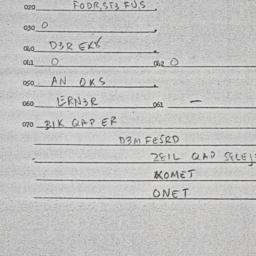 020 FODR,ST3 FUS
030 0
040 D3R EKY
041 0 042 0
050 AN OKS
060 LERN3R 061 —
070 BIK QAP ER
D3M FESRD
ZEIL QAP SELEJ
KOMET
ONET